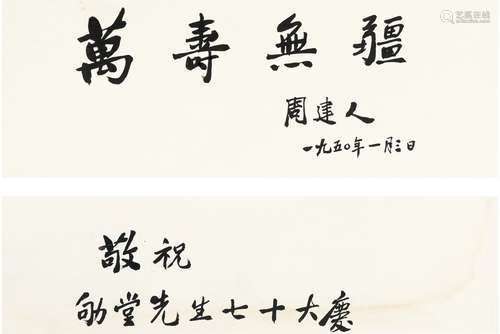 艺狐在线
萬壽無疆
周建人
一九五〇年一月三日
敬祝
劬堂先生七十大慶